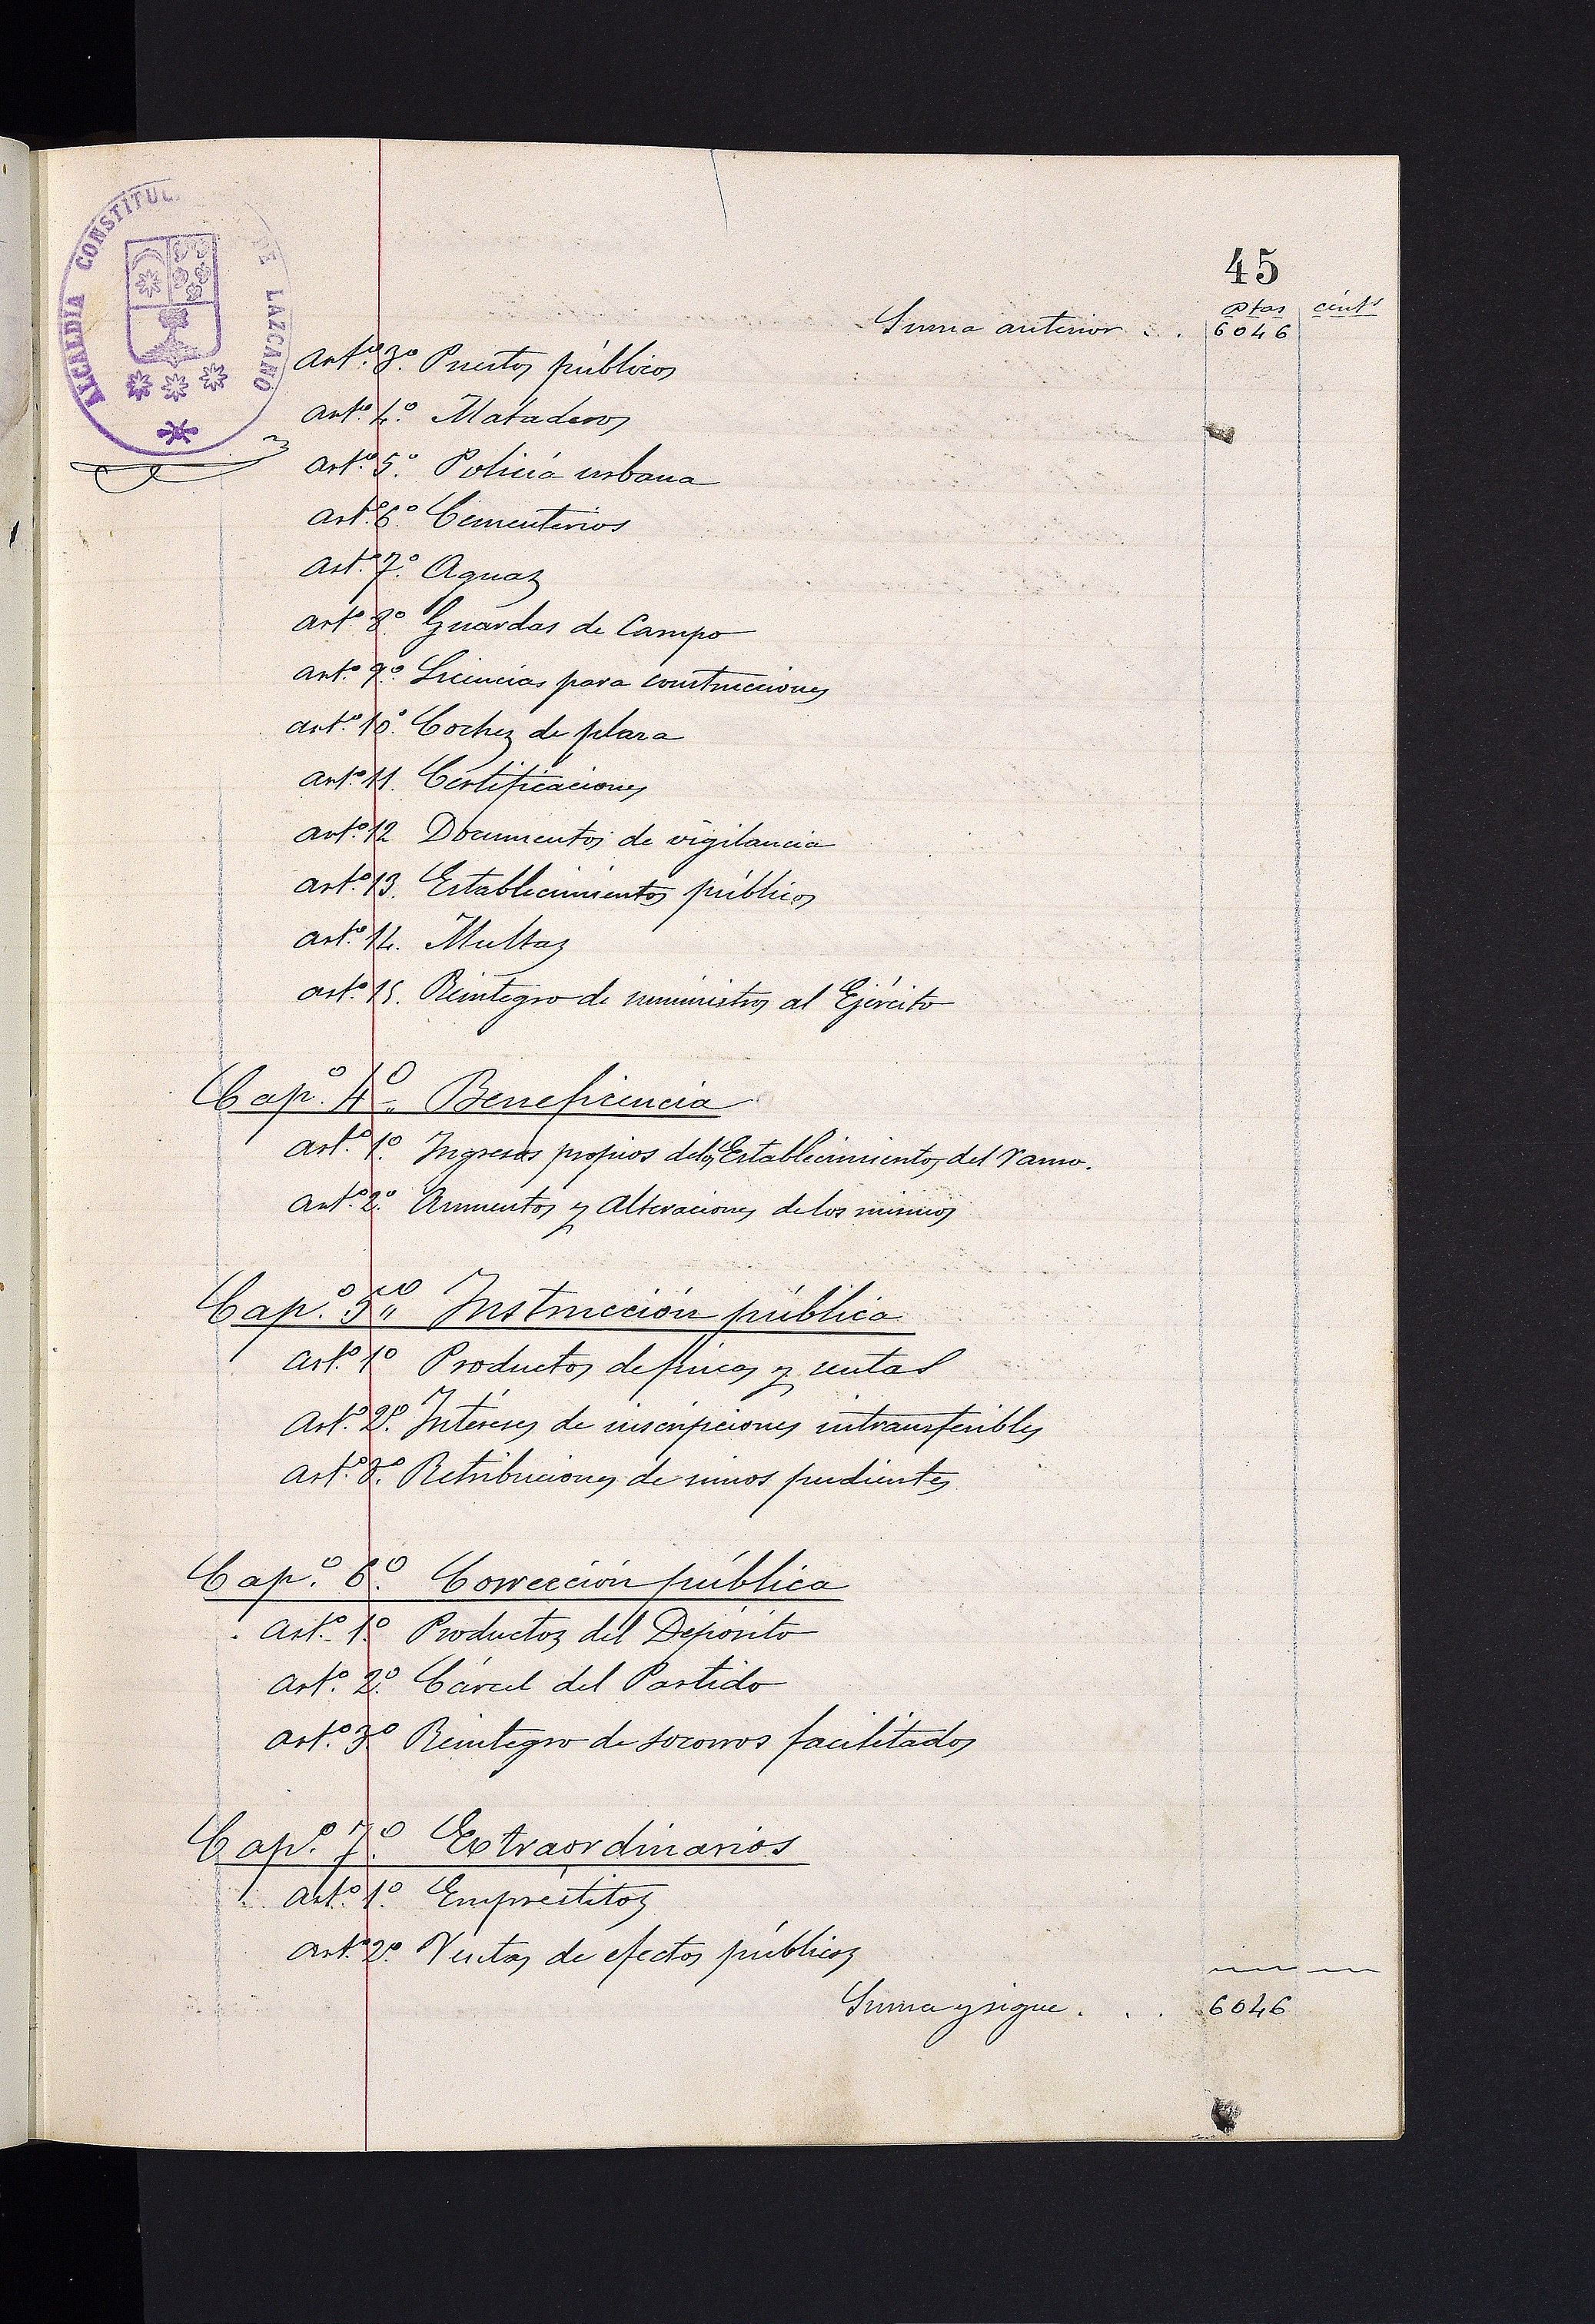 45
ALCALDIA CONSTITUC DE LAZCANO
ptas cents
Suma anterior . . . 6046
Artº. 3º. Puestos públicos
artº. 4º. Mataderos
artº. 5º. Policía urbana
artº. 6º. Cementerios
artº. 7º. Aguas
artº. 8º. Guardas de Campo
artº. 9º. Licencias para construcciones
artº. 10º. Coches de plaza
artº. 11. Certificaciones
artº. 12 Documentos de vigilancia
artº. 13. Establecimientos públicos
artº. 14. Multas
artº. 15. Reintegro de suministros al Ejército
Capº. 4º. Beneficencia
artº. 1º. Ingresos propios delos Establecimientos del ramo.
artº. 2º. Aumentos y alteraciones de los mismos
Capº. 5º. Instrucción pública
artº. 1º Productos de fincas y rentas
artº. 2º. Intereses de inscripciones intransferibles
artº. 3º. Retribuciones de niños pudientes
Capº. 6º. Corrección pública
artº. 1º. Productos del Depósito
artº. 2º. Cárcel del Partido
artº. 3º. Reintegro de socorros facilitados
Capº. 7º. Extraordinarios
artº. 1º. Empréstitos
artº. 2º. Ventas de efectos públicos
Suma y sigue . . . 6046